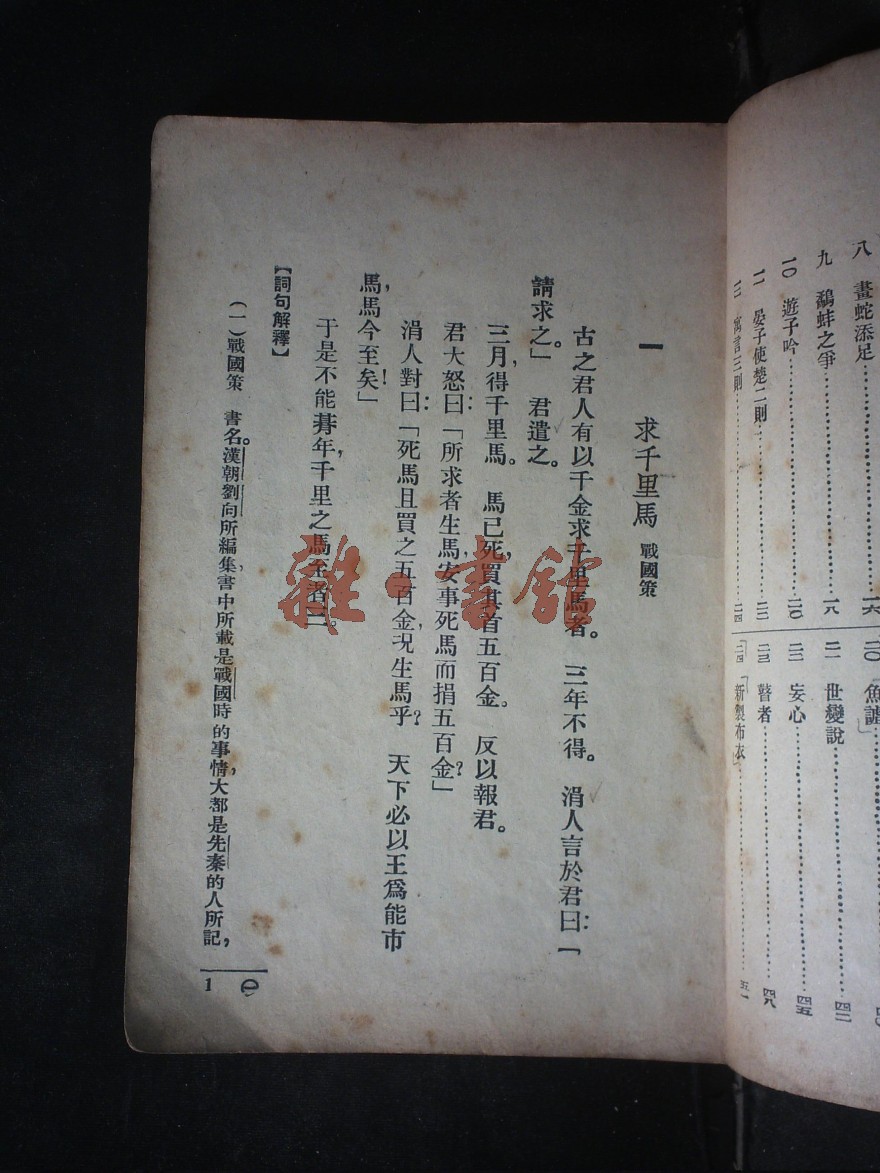 八 畫蛇添足……一六
九 鷸蚌之爭……一八
一〇 遊子吟……二〇
一一 晏子使楚二則……二二
一二 寓言三則……二四
二〇
二一 世變說……四二
二二 妄心……四五
二三 瞽者……四八
二四 「新製布衣」……五一
一 求千里馬 戰國策
古之君人有以千金求千里馬者。三年不得。涓人言於君曰:「
請求之。」君遣之。
三月,得千里馬。馬已死,買其首五百金。反以報君。
君大怒曰:「所求者生馬,安事死馬而捐五百金?」
涓人對曰:「死馬且買之五百金,況生馬乎?天下必以王爲能市
馬,馬今至矣!」
于是不能朞年,千里之馬至者三。
【詞句解釋】
(一)戰國策 書名。漢朝劉向所編集,書中所載是戰國時的事情,大都是先秦的人所記,
1
雜·書館